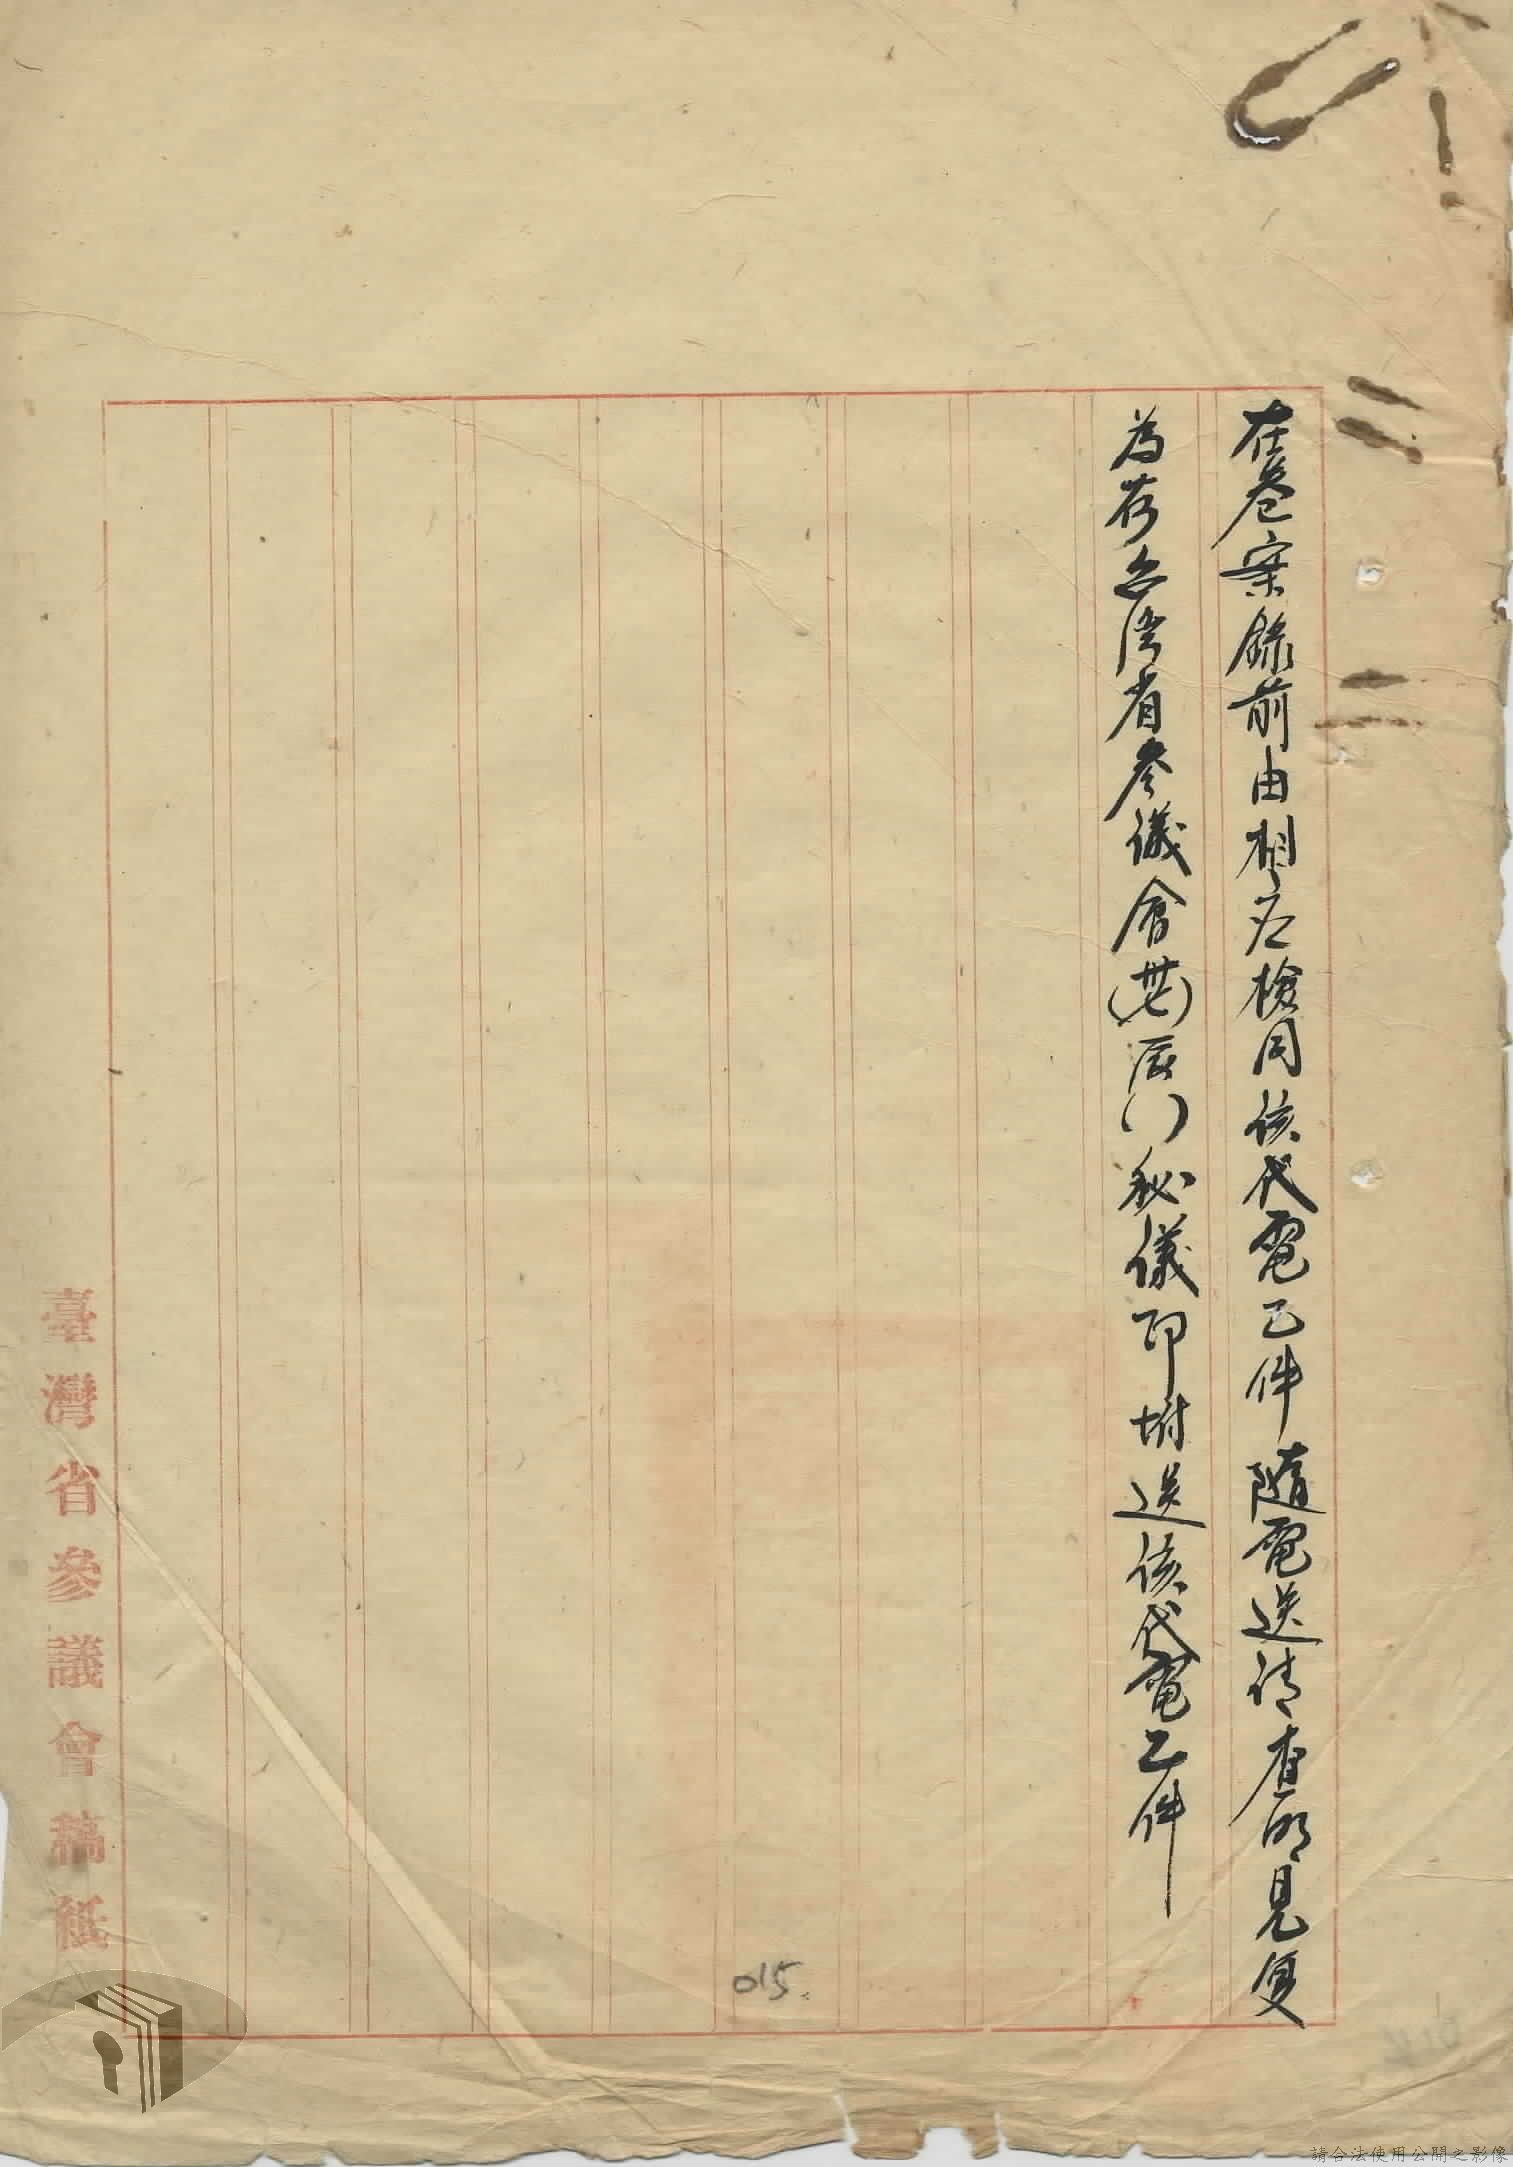 在卷案錄前由相應檢同該代電乙件隨電送請查明見復
為荷台灣省參議會(卅七)辰( )秘議印附送該代電乙件
臺灣省參議會稿紙
015
請合法使用公開之影像